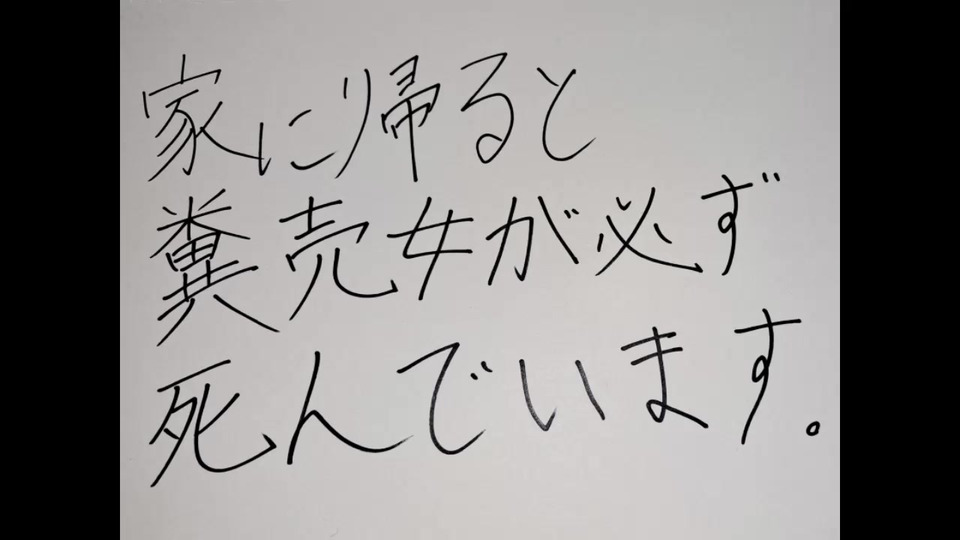 家に帰ると
糞売女が必ず
死んでいます。